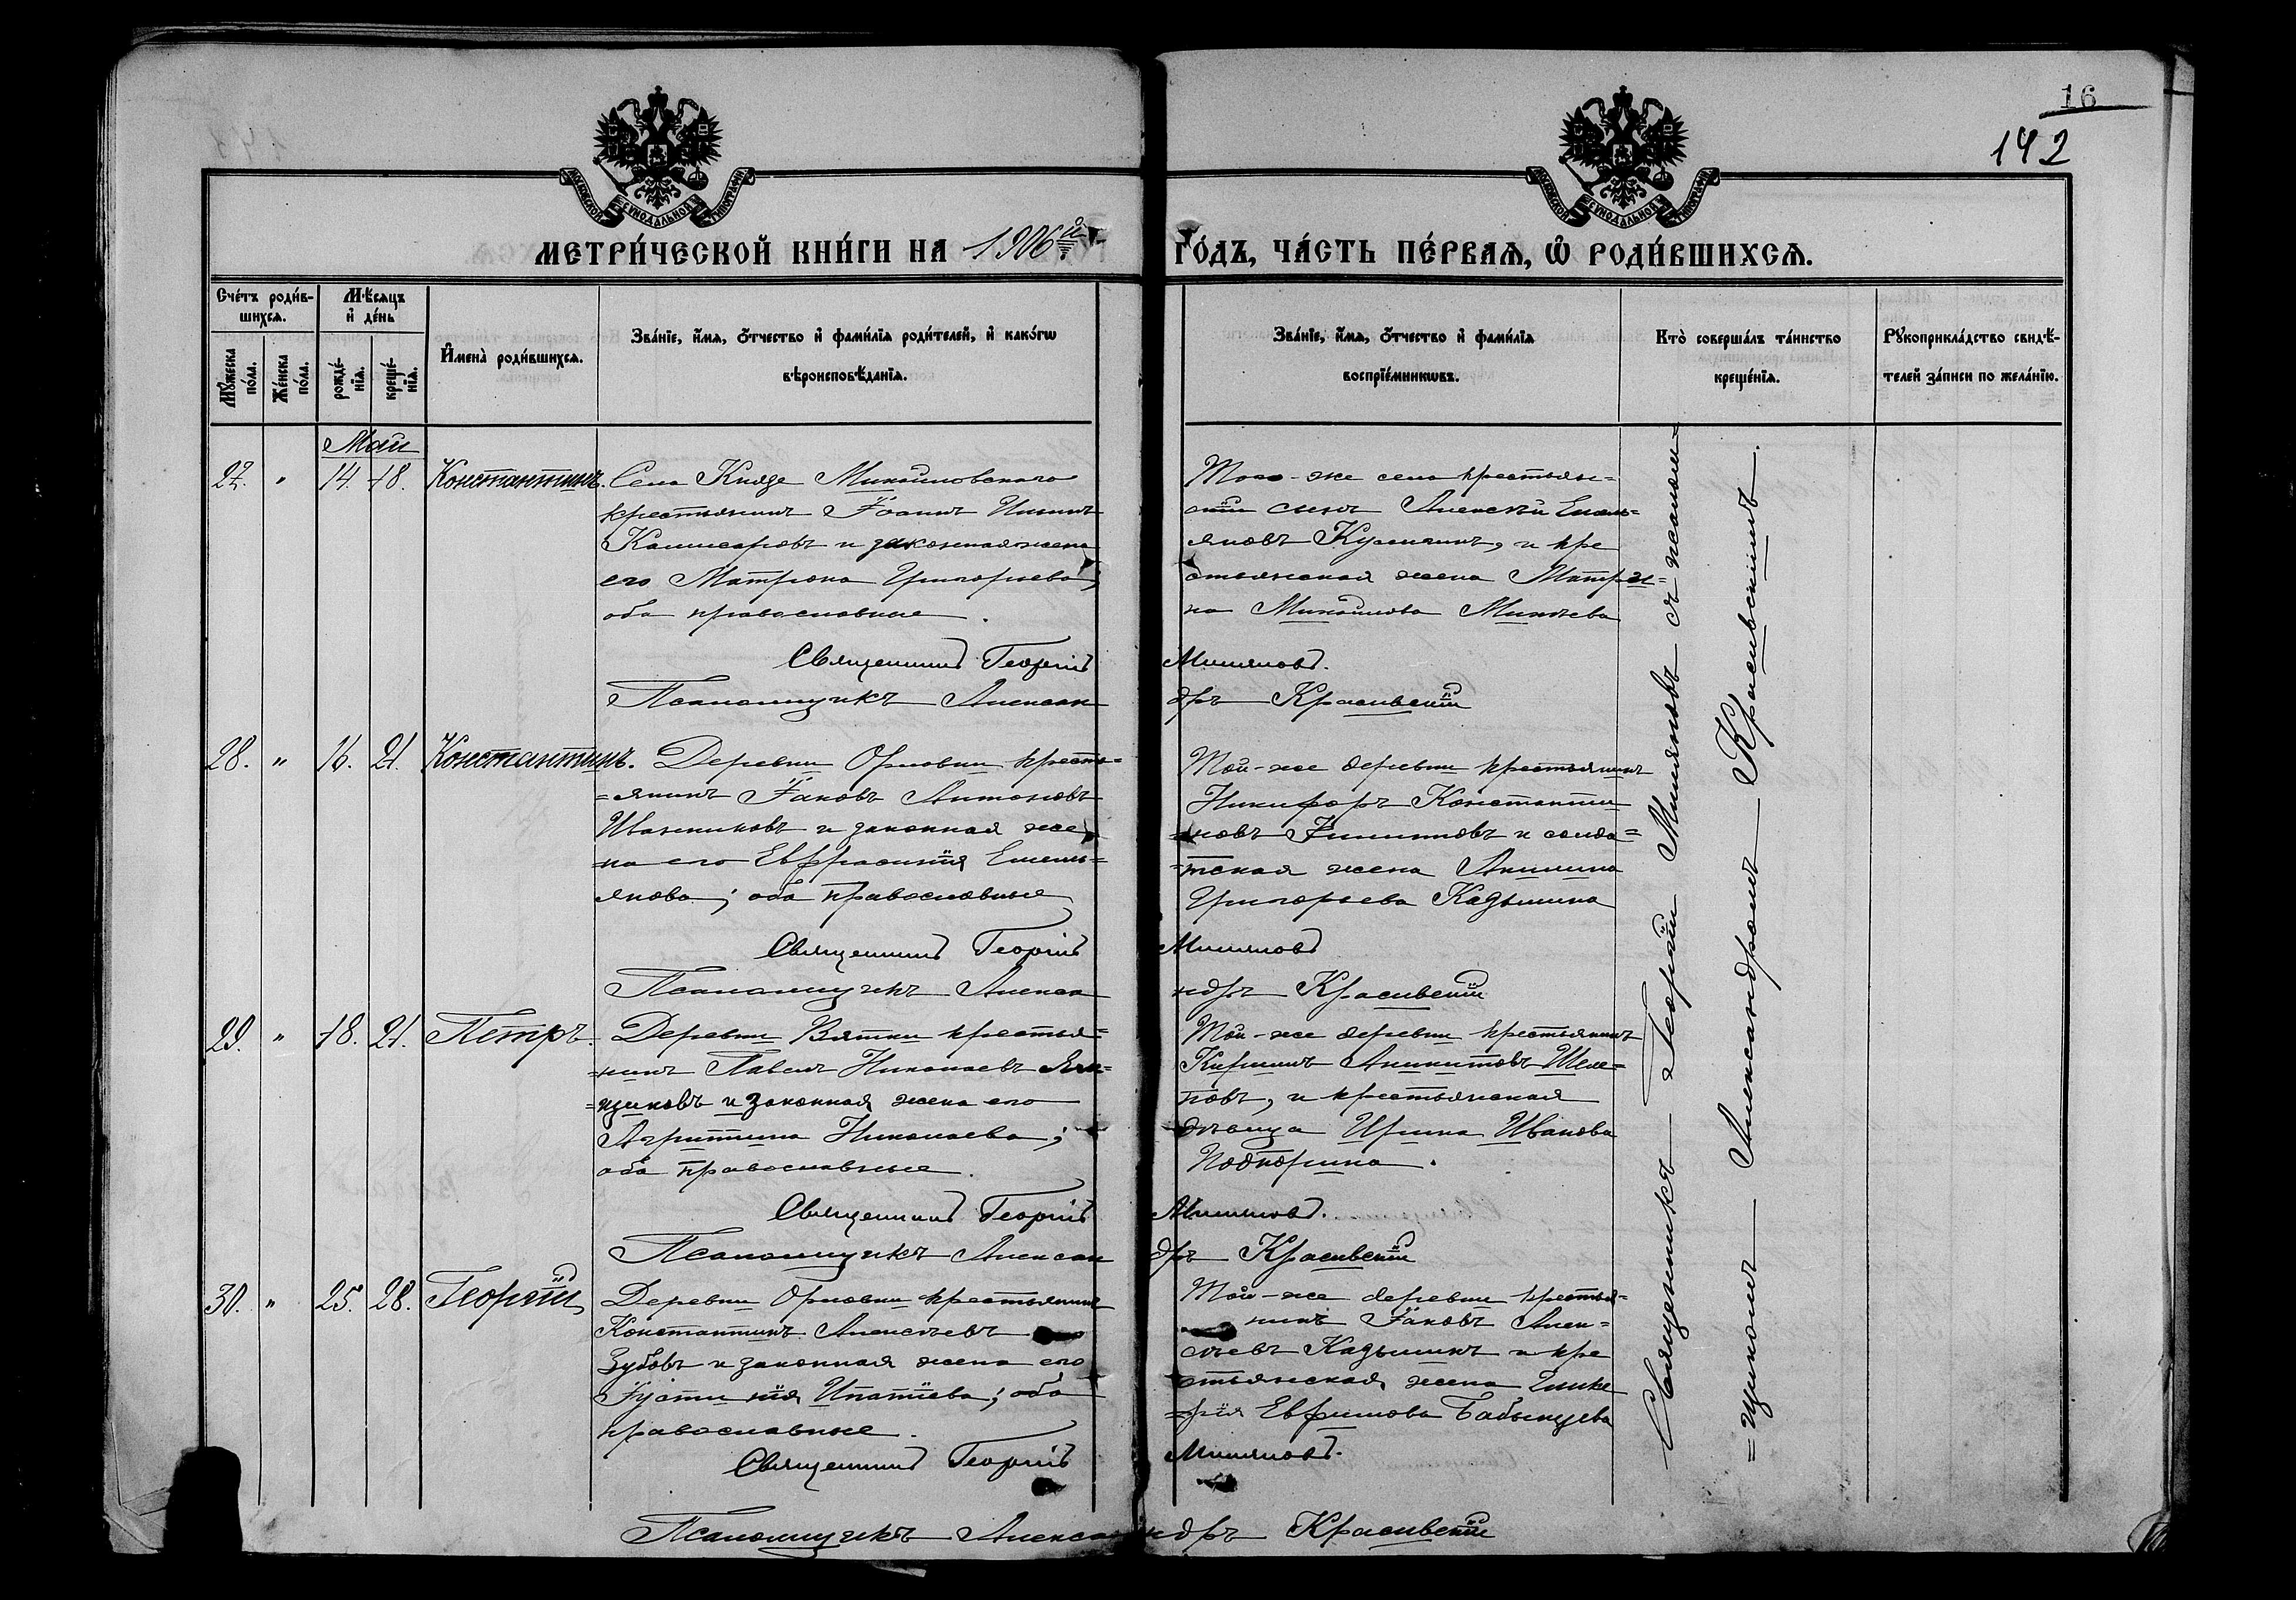 16
142
МОСКОВСКОЙ СѴНОДАЛЬНОЙ ТИПОГРАФІИ
МОСКОВСКОЙ СѴНОДАЛЬНОЙ ТИПОГРАФІИ
МЕТРИ́ЧЕСКОЙ КНИ́ГИ НА 1906й
ГО́ДЪ, ЧА́СТЬ ПЕ́РВАѦ, Ѡ҆ РОДИ́ВШИХСѦ.
Счéтъ роди́в-
шихсѧ.
Мꙋ́жеска по́ла.
Же́нска по́ла.
Мѣ́сѧцъ
и҆ де́нь
рожде́-нїѧ.
креще́-нїѧ.
И҆мена̀ роди́вшихсѧ.
Зва́нїе, и҆́мѧ, ѻ҆́тчество и҆ фами́лїѧ роди́телей, и҆ како́гѡ
вѣроисповѣ́данїѧ.
Зва́нїе, и҆́мѧ, ѻ҆́тчество и҆ фами́лїѧ
воспрїе́мникѡвъ.
Кто̀ соверша́лъ та́инство
креще́нїѧ.
Рꙋкоприкла́дство свидѣ́-
телей за́писи по жела́нїю.
Май
27. " 14. 18. Константинъ.
Села Князе Михайловскаго
крестьянинъ Іоаннъ Ильинъ
Комисаровъ и законная жена
его Матрона Григорьева;
оба православные.
Того-же села крестьян=
скій сынъ Алексѣй Емель=
яновъ Кулинъ, и кре
стьянская жена Матро=
на Михайлова Михѣева
Священникъ Георгій Миляновъ.
Псаломщикъ Александръ Красивскій
28. " 16. 21. Константинъ.
Деревни Орловки кресть=
=янинъ Іаковъ Антоновъ
Иванниковъ и законная же
на его Евфросинія Емель=
янова; оба православные
Той-же деревни крестьянинъ
Никифоръ Константи
=новъ Филиповъ и солда=
=тская жена Акилина
Григорьева Кадымина
Священникъ Георгій Миляновъ
Псаломщикъ Александръ Красивскій
29. " 18. 21. Петръ.
Деревни Вятки крестья=
=нинъ Павелъ Николаевъ Ям=
=щиковъ и законная жена его
Агриппина Николаева;
оба православные.
Той-же деревни крестьянинъ
Кириллъ Аникитовъ Шеле=
повъ, и крестьянская
дѣвица Ирина Иванова
Подпорина.
Священникъ Георгій Миляновъ.
Псаломщикъ Александръ Красивскій
30. " 25. 28. Георгій
Деревни Орловки крестьянинъ
Константинъ Алексѣевъ
Зубовъ и законная жена его
Іустинія Ипатіева; оба
православные.
Той-же деревни крестья=
нинъ Іаковъ Алек=
сѣевъ Кадыминъ и кре
стьянская жена Глике
=рія Евфимова Бабынцева
Священникъ Георгій Миляновъ.
Псаломщикъ Александръ Красивскій
Священникъ Георгій Миляновъ съ псалом=
=щикомъ Александромъ Красивскимъ.